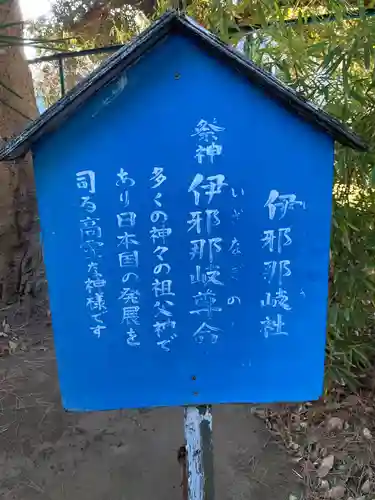 伊邪那岐社
祭神
伊邪那岐尊命
いざなぎの
多くの神々の祖父神で
あり日本国の発展を
司る高霊な神様です